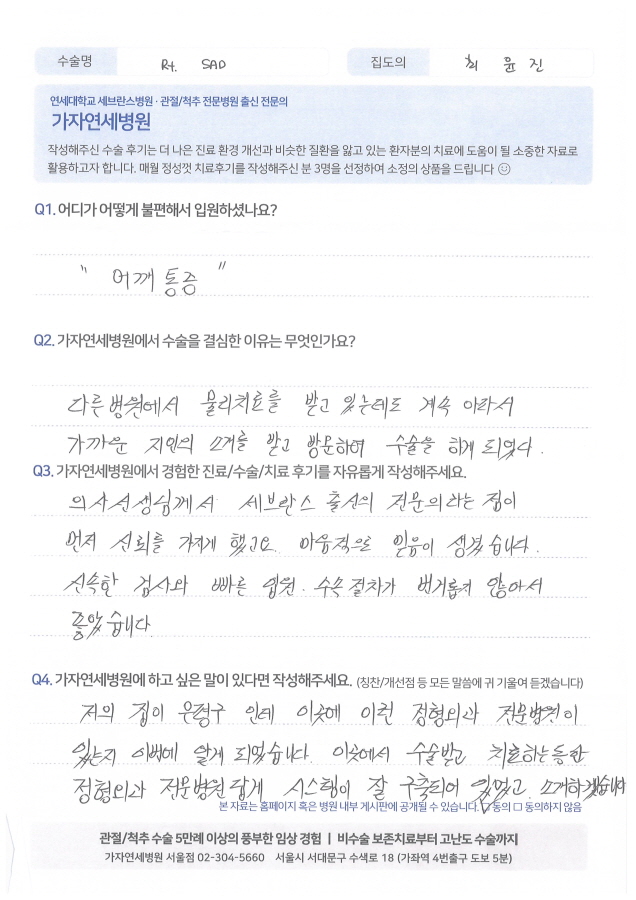 수술명 Rt. SAD 집도의 최윤진
연세대학교 세브란스병원 · 관절/척추 전문병원 출신 전문의
가자연세병원
작성해주신 수술 후기는 더 나은 진료 환경 개선과 비슷한 질환을 앓고 있는 환자분의 치료에 도움이 될 소중한 자료로
활용하고자 합니다. 매월 정성껏 치료후기를 작성해주신 분 3명을 선정하여 소정의 상품을 드립니다 ☺
Q1. 어디가 어떻게 불편해서 입원하셨나요?
" 어깨통증 "
Q2. 가자연세병원에서 수술을 결심한 이유는 무엇인가요?
다른병원에서 물리치료를 받고 있는데도 계속 아라서
가까운 지인의 소개를 받고 방문하여 수술을 하게 되었다.
Q3. 가자연세병원에서 경험한 진료/수술/치료 후기를 자유롭게 작성해주세요.
의사선생님께서 세브란스 출신의 전문의라는 점이
먼저 신뢰를 가지게 했고요. 마음적으로 믿음이 생겼습니다.
신속한 검사와 빠른 입원. 수속절차가 번거롭지 않아서
좋았습니다.
Q4. 가자연세병원에 하고 싶은 말이 있다면 작성해주세요. (칭찬/개선점 등 모든 말씀에 귀 기울여 듣겠습니다)
저의 집이 은평구 인데 이곳에 이런 정형외과 전문병원이
있는지 이번에 알게 되었습니다. 이곳에서 수술받고 치료하는동안
정형외과 전문병원답게 시스템이 잘 구축되어 있었고. 소개하겠습니다
본 자료는 홈페이지 혹은 병원 내부 게시판에 공개될 수 있습니다. ☑ 동의 □ 동의하지 않음
관절/척추 수술 5만례 이상의 풍부한 임상 경험 | 비수술 보존치료부터 고난도 수술까지
가자연세병원 서울점 02-304-5660 서울시 서대문구 수색로 18 (가좌역 4번출구 도보 5분)